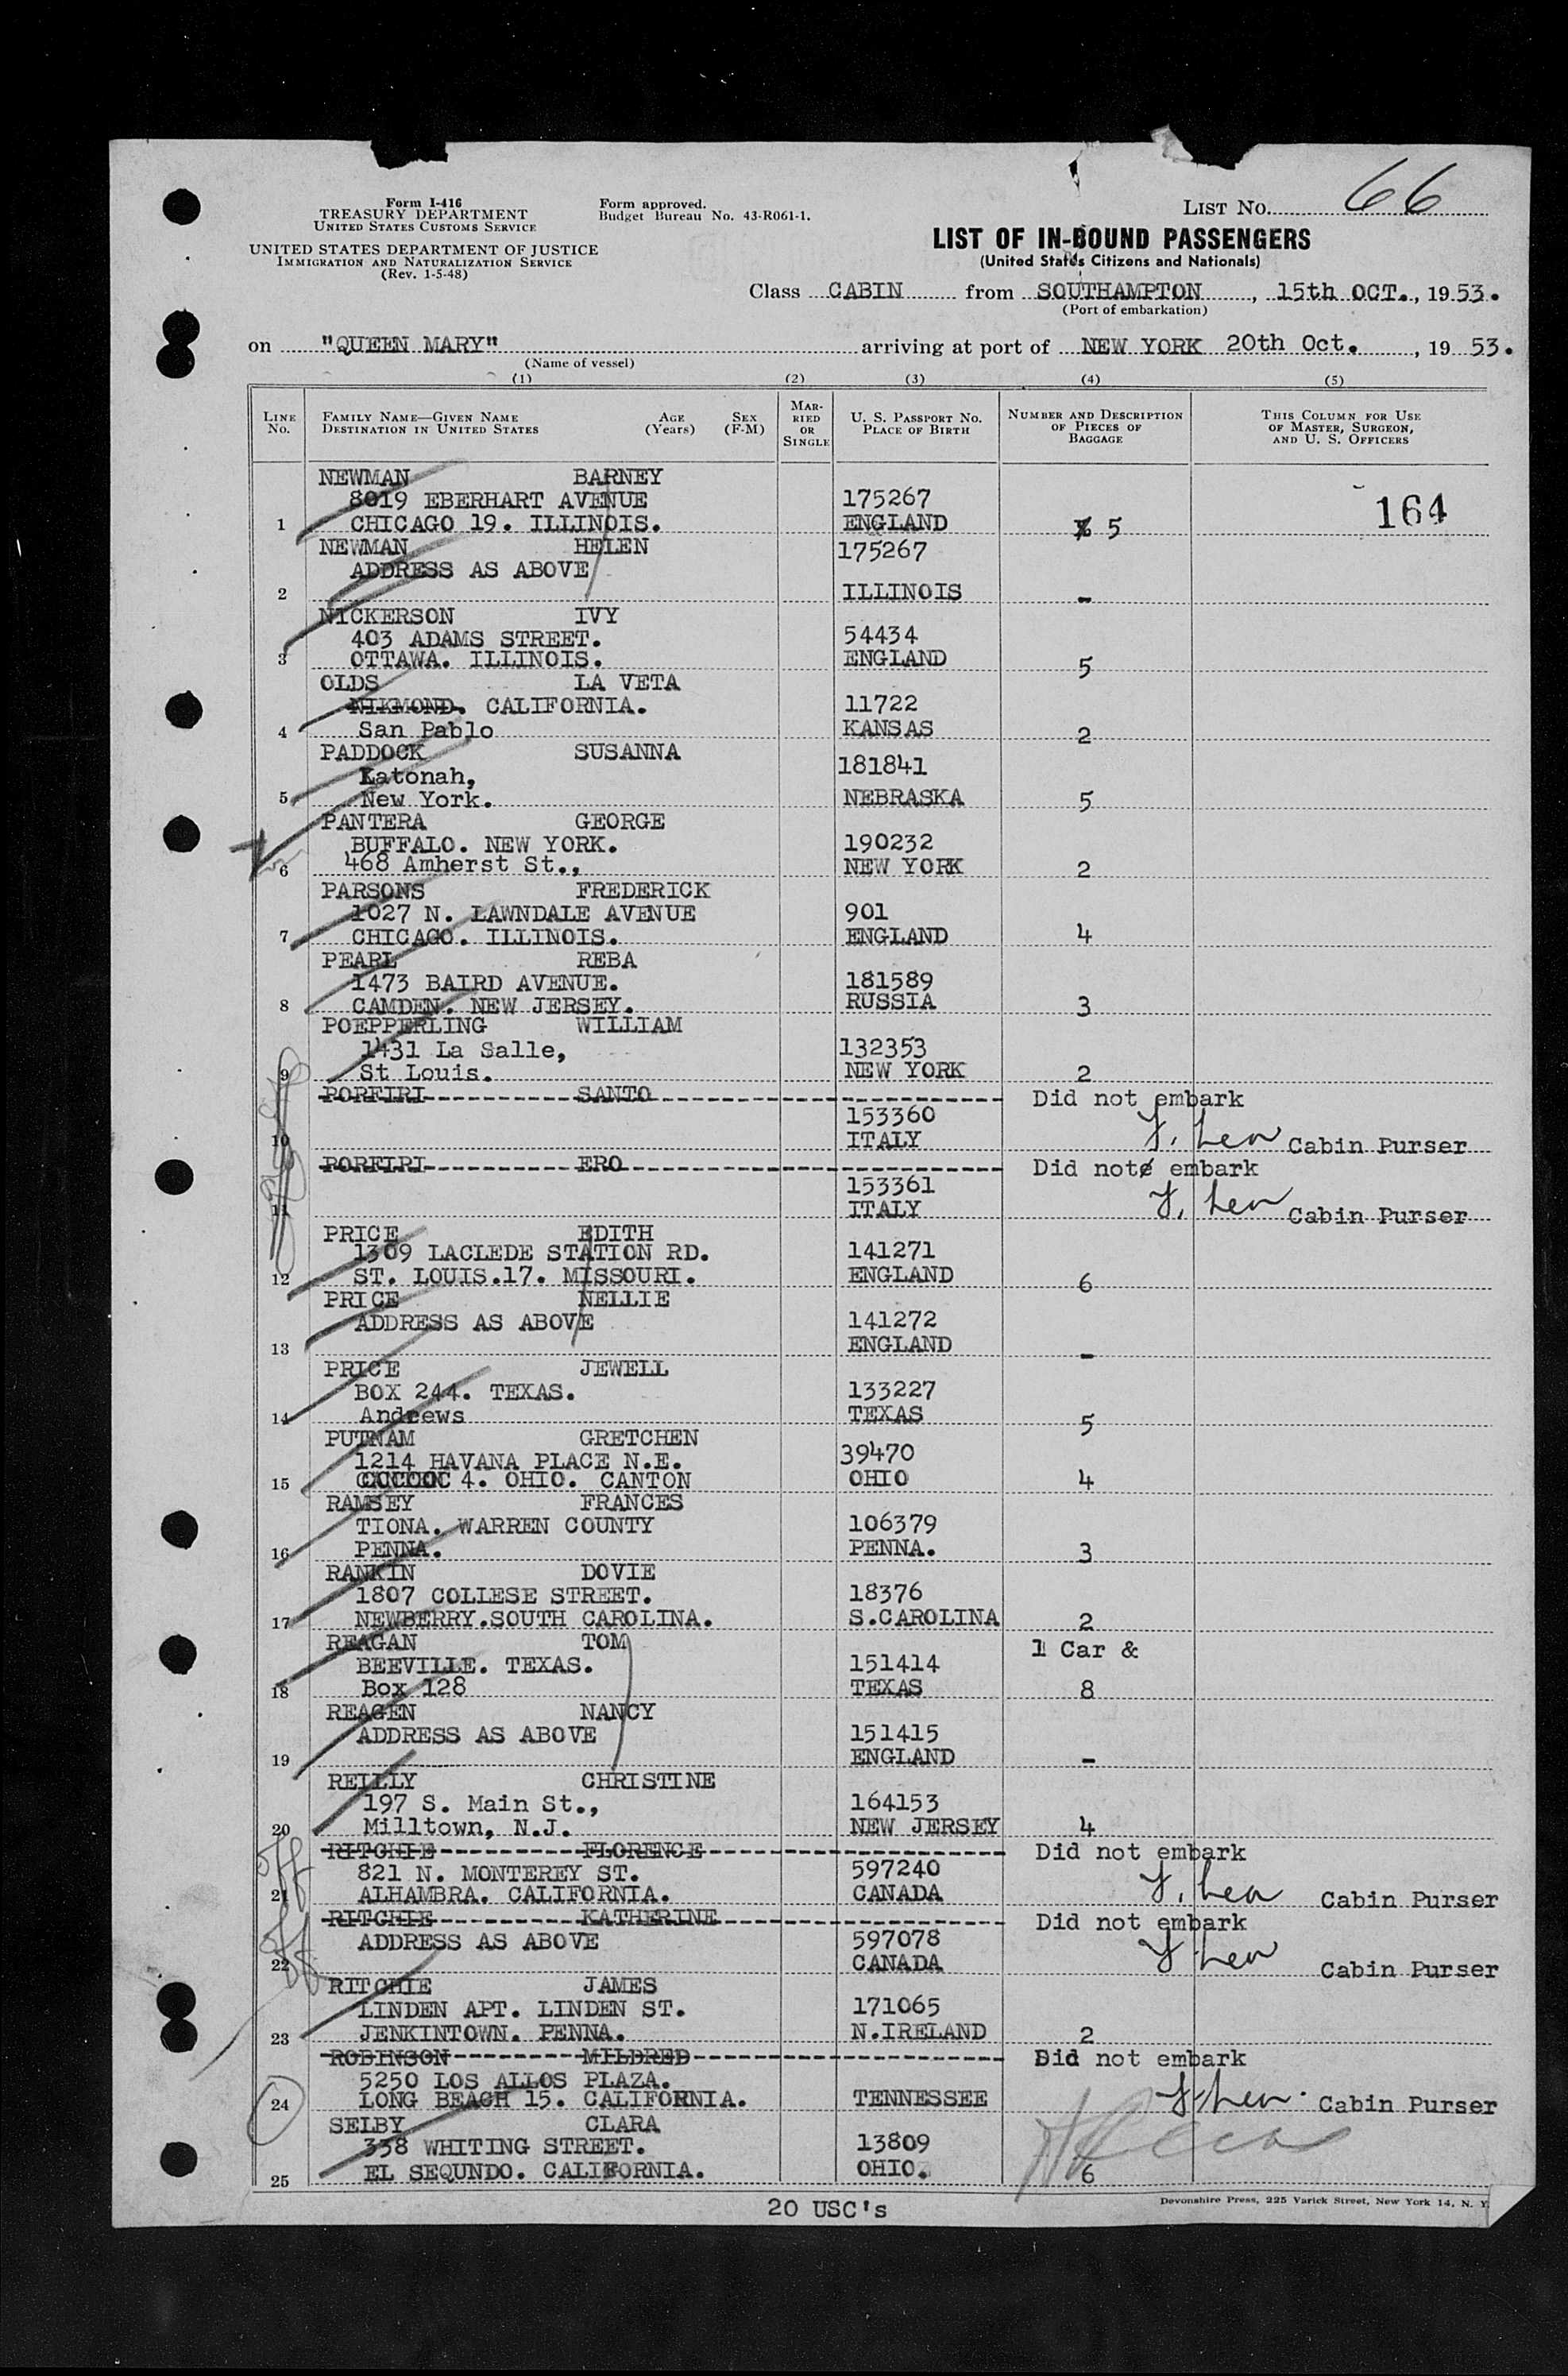 Form I-416
TREASURY DEPARTMENT
UNITED STATES CUSTOMS SERVICE
UNITED STATES DEPARTMENT OF JUSTICE
IMMIGRATION AND NATURALIZATION SERVICE
(Rev. 1-5-48)
Form approved.
Budget Bureau No. 43-R061-1.
LIST NO. 66
LIST OF IN-BOUND PASSENGERS
(United States Citizens and Nationals)
Class CABIN from SOUTHAMPTON, 15th OCT., 1953.
(Port of embarkation)
on "QUEEN MARY" arriving at port of NEW YORK 20th Oct., 1953.
(Name of vessel)
(1) (2) (3) (4) (5)
LINE NO.
FAMILY NAME—GIVEN NAME
DESTINATION IN UNITED STATES
AGE (Years)
SEX (F-M)
MARRIED OR SINGLE
U. S. PASSPORT NO.
PLACE OF BIRTH
NUMBER AND DESCRIPTION OF PIECES OF BAGGAGE
THIS COLUMN FOR USE OF MASTER, SURGEON, AND U. S. OFFICERS
NEWMAN BARNEY
8019 EBERHART AVENUE 175267 164
1 CHICAGO 19. ILLINOIS. ENGLAND 5
NEWMAN HELEN 175267
ADDRESS AS ABOVE
2 ILLINOIS -
NICKERSON IVY
403 ADAMS STREET. 54434
3 OTTAWA. ILLINOIS. ENGLAND 5
OLDS LA VETA
NIKMOND. CALIFORNIA. 11722
4 San Pablo KANSAS 2
PADDOCK SUSANNA 181841
Katonah,
5 New York. NEBRASKA 5
PANTERA GEORGE
BUFFALO. NEW YORK. 190232
6 468 Amherst St., NEW YORK 2
PARSONS FREDERICK
1027 N. LAWNDALE AVENUE 901
7 CHICAGO. ILLINOIS. ENGLAND 4
PEARL REBA
1473 BAIRD AVENUE. 181589
8 CAMDEN. NEW JERSEY. RUSSIA 3
POEPPERLING WILLIAM
1431 La Salle, 132353
9 St Louis. NEW YORK 2
PORFIRI SANTO Did not embark
153360
10 ITALY Cabin Purser
PORFIRI ERO Did not embark
153361
11 ITALY Cabin Purser
PRICE EDITH
1309 LACLEDE STATION RD. 141271
12 ST. LOUIS.17. MISSOURI. ENGLAND 6
PRICE NELLIE
ADDRESS AS ABOVE 141272
13 ENGLAND -
PRICE JEWELL
BOX 244. TEXAS. 133227
14 Andrews TEXAS 5
PUTNAM GRETCHEN
1214 HAVANA PLACE N.E. 39470
15 4. OHIO. CANTON OHIO 4
RAMSEY FRANCES
TIONA. WARREN COUNTY 106379
16 PENNA. PENNA. 3
RANKIN DOVIE
1807 COLLESE STREET. 18376
17 NEWBERRY.SOUTH CAROLINA. S.CAROLINA 2
REAGAN TOM 1 Car &
BEEVILLE. TEXAS. 151414
18 Box 128 TEXAS 8
REAGEN NANCY
ADDRESS AS ABOVE 151415
19 ENGLAND -
REILLY CHRISTINE
197 S. Main St., 164153
20 Milltown, N.J. NEW JERSEY 4
RITCHIE FLORENCE Did not embark
821 N. MONTEREY ST. 597240
21 ALHAMBRA. CALIFORNIA. CANADA Cabin Purser
RITCHIE KATHERINE Did not embark
ADDRESS AS ABOVE 597078
22 CANADA Cabin Purser
RITCHIE JAMES
LINDEN APT. LINDEN ST. 171065
23 JENKINTOWN. PENNA. N.IRELAND 2
ROBINSON MILDRED Did not embark
5250 LOS ALLOS PLAZA.
24 LONG BEACH 15. CALIFORNIA. TENNESSEE Cabin Purser
SELBY CLARA
338 WHITING STREET. 13809
25 EL SEQUNDO. CALIFORNIA. OHIO. 6
20 USC's
Devonshire Press, 225 Varick Street, New York 14, N. Y.